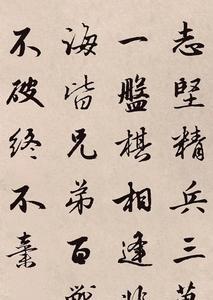 志堅精兵三
一盤棋相逢
海皆兄弟百
不破終不棄